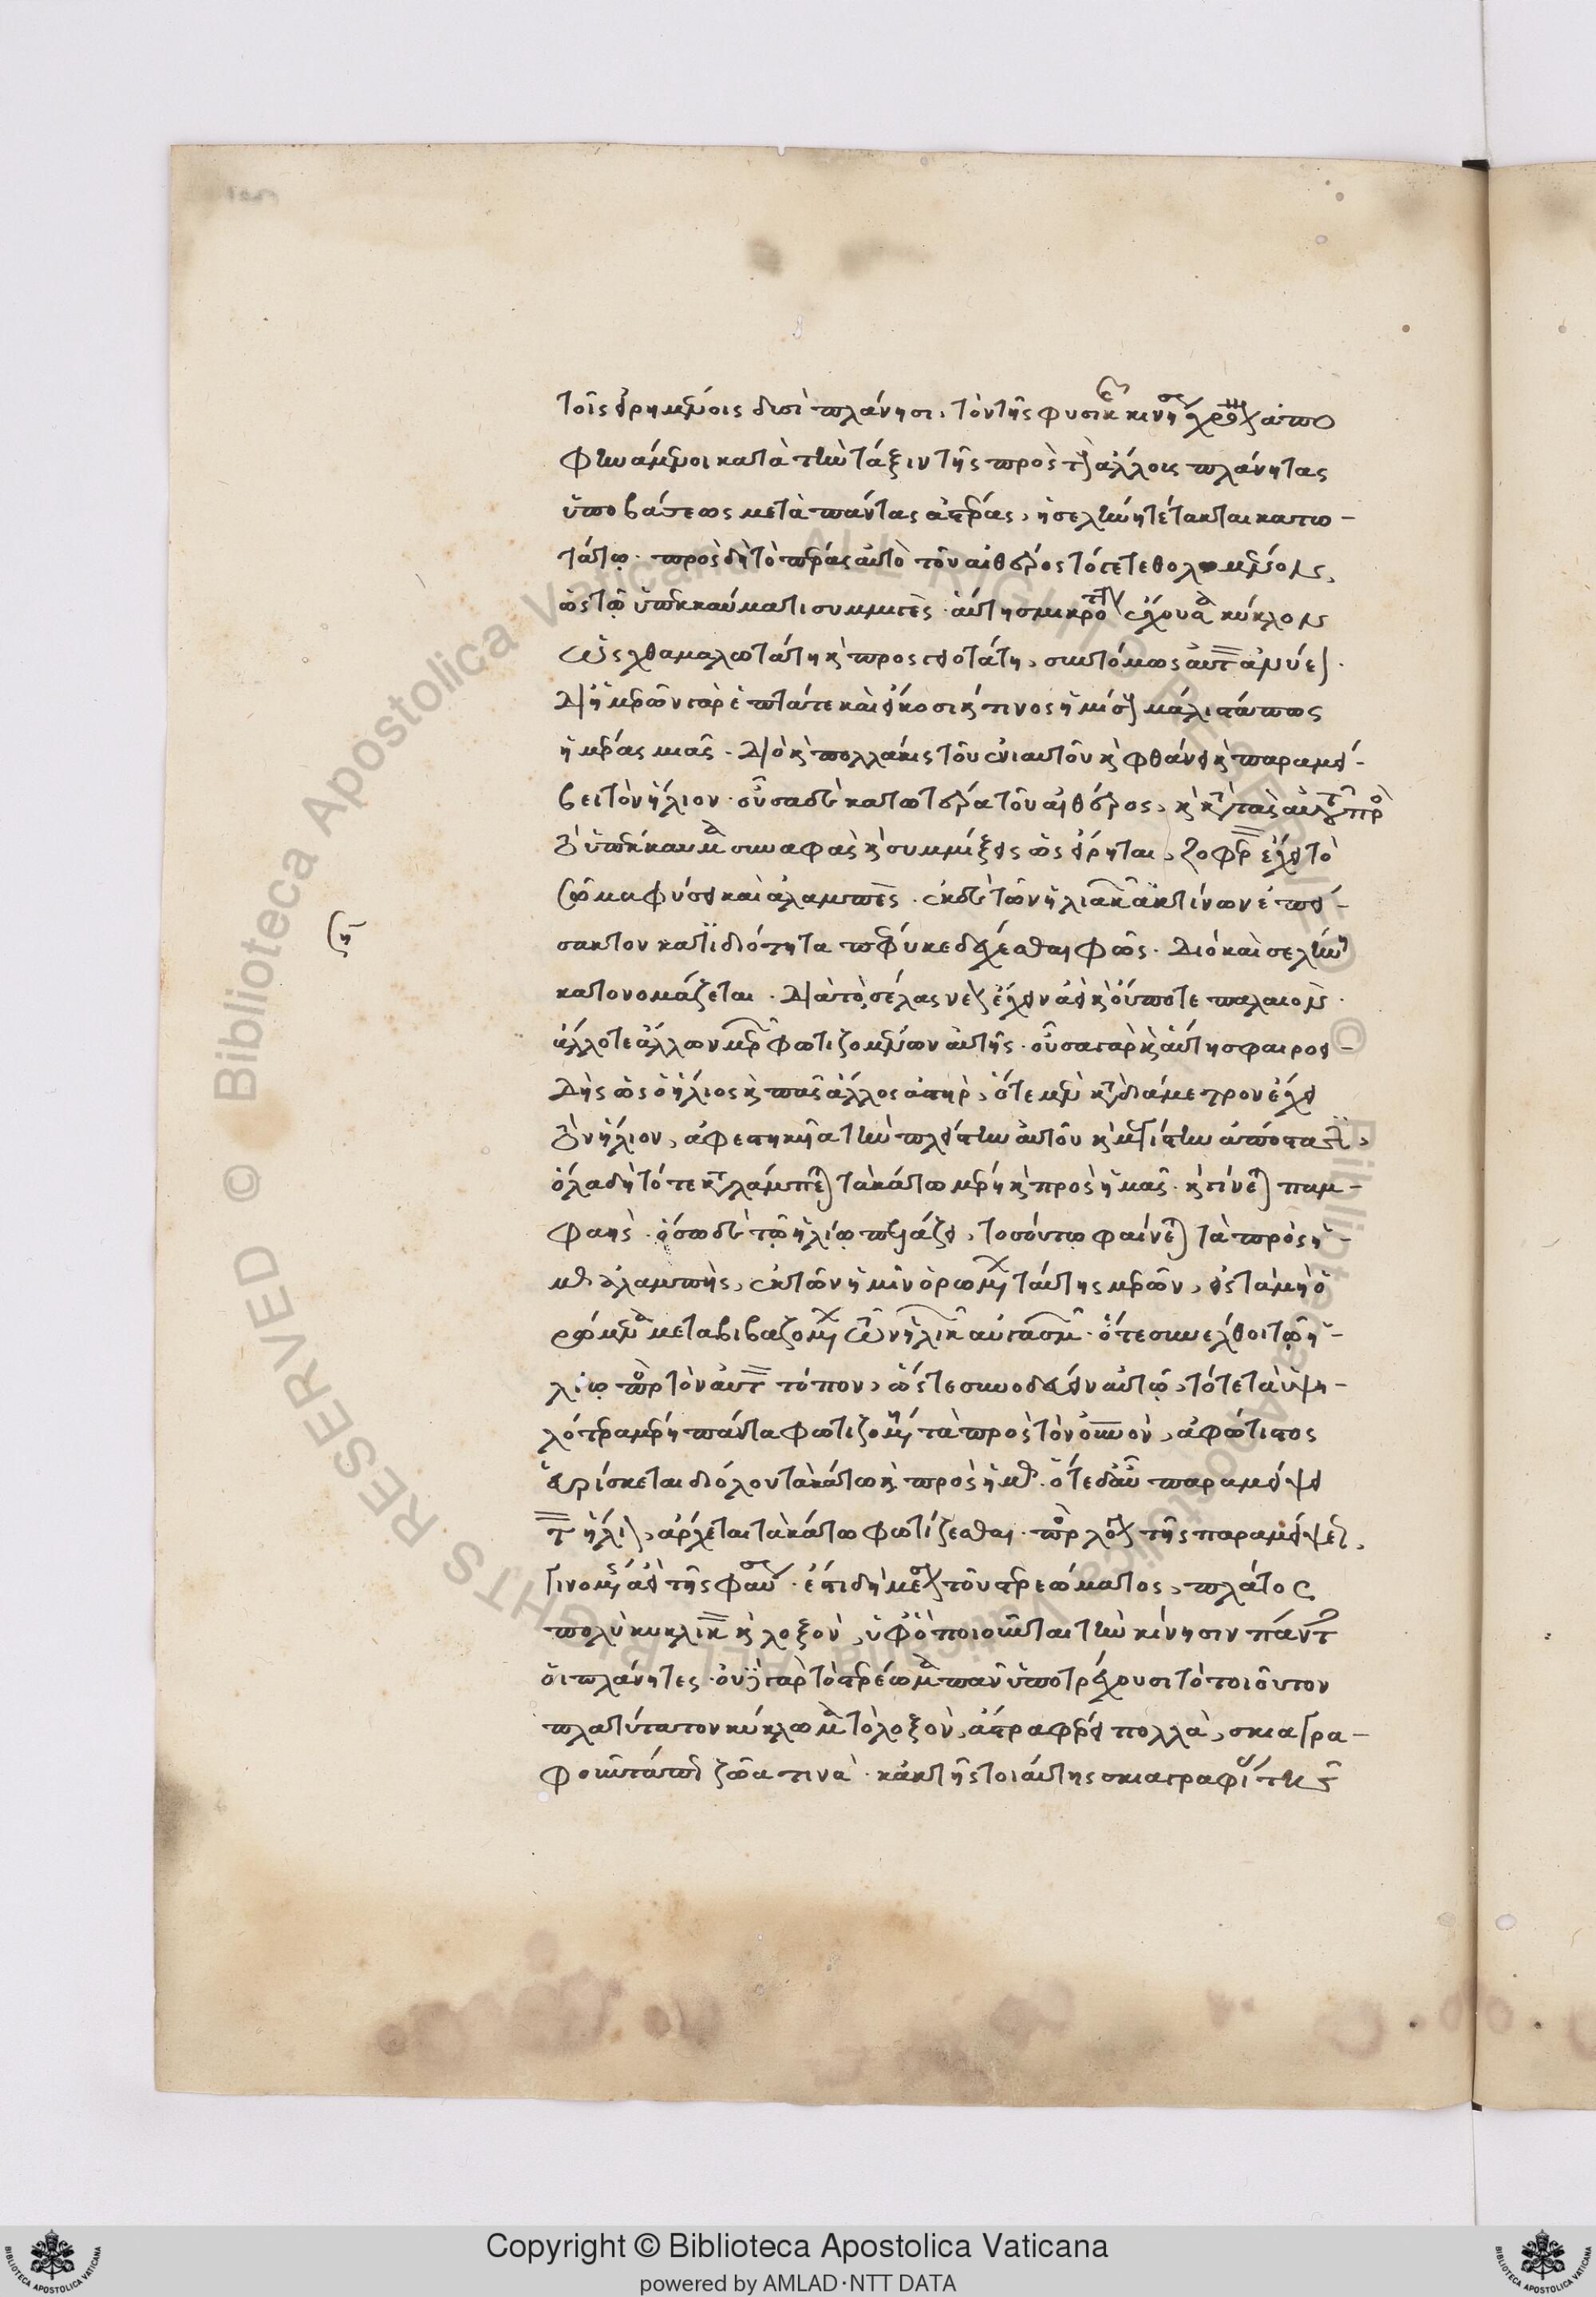 τοῖς εἰρημένοις δυσὶ πλάνησι, τὸν τῆς φυσικῆς κινήσεως χρόνον ἀπο
κατὰ τὴν τάξιν τῆς πρὸς τοὺς ἄλλους πλάνητας
ὑποβάσεως μετὰ πάντας ἀστέρας, ἡ σελήνη τέτακται κατω-
τάτω. πρὸς δὴ τὸ πέρας αὐτὸ τοῦ αἰθέρος τό τε τεθολωμένον,
ὡς τῷ ὑπεκκαύματι συμμιγές. αὕτη σμικρότατον ἔχουσα κύκλον
ὡς χθαμαλωτάτη καὶ προσγειοτάτη, συντόμως αὐτὸν ἀνύει.
δι' ἡμερῶν γὰρ ἑπτά τε καὶ εἴκοσι καί τινος ἡμίσεος μάλιστά πως
ἡμέρας μιᾶς. διὸ καὶ πολλάκις τοῦ ἐνιαυτοῦ καὶ φθάνει καὶ παραμεί-
βει τὸν ἥλιον. οὖσα δὲ κατωτέρα τοῦ αἰθέρος, καὶ κατὰ τὰς αὐτοῦ πρὸς
τὸ ὑπέκκαυμα συναφὰς καὶ συμμίξεις ὡς εἴρηται, ζοφερὸν ἔχει τὸ
σῶμα φύσει καὶ ἀλαμπές. ἐκ δὲ τῶν ἡλιακῶν ἀκτίνων ἐπεί-
σακτον κατ' ἰδιότητα πέφυκε δέχεσθαι φῶς. διὸ καὶ σελήνη
κατονομάζεται. διὰ τὸ σέλας νέον ἔχειν ἀεὶ καὶ οὔποτε παλαιόν.
ἄλλοτε ἄλλων μερῶν φωτιζομένων αὐτῆς. οὖσα γὰρ καὶ αὕτη σφαιροει-
δὴς ὡς ὁ ἥλιος καὶ πᾶς ἄλλος ἀστήρ, ὅτε μὲν κατὰ διάμετρον ἔχει
τὸν ἥλιον, ἀφεστηκυῖα τὴν πλείστην αὐτοῦ καὶ μεγίστην ἀπόστασιν,
ὅλα δὴ τότε καταλάμπεται τὰ κάτω μέρη καὶ πρὸς ἡμᾶς. καὶ γίνεται παμ-
φαής. ὅσῳ δὲ τῷ ἡλίῳ πελάζει, τοσούτῳ φαίνεται τὰ πρὸς ἡ-
μᾶς ἀλαμπής, ἐκ τῶν ἡμῖν ὁρωμένων ταύτης μερῶν, εἰς τὰ μὴ ὁ
ρώμενα μεταβιβαζομένων τῶν ἡλιακῶν αὐγασμῶν. ὅτε συνέλθοι τῷ ἡ-
λίῳ περὶ τὸν αὐτὸν τόπον, ὥστε συνοδεύειν αὐτῷ, τότε τὰ ὑψη-
λότερα μέρη πάντα φωτιζομένη τὰ πρὸς τὸν οὐρανόν, ἀφώτιστος
εὑρίσκεται διόλου τὰ κάτω καὶ πρὸς ἡμᾶς. ὅτε δ' αὖ παραμείψει
τὸν ἥλιον, ἄρχεται τὰ κάτω φωτίζεσθαι. πρὸς λόγον τῆς παραμείψεως,
γινομένης ἀεὶ τῆς φαύσεως. ἔστι δὴ μέσον τοῦ στερεώματος, πλάτος
πολὺ κυκλικὸν καὶ λοξόν, ὑφ' ὃ ποιοῦνται τὴν κίνησιν πάντες
οἱ πλάνητες. οὐ γὰρ τὸ στερέωμα πᾶν ὑποτρέχουσι τὸ τοιοῦτον
πλατύτατον κύκλωμα τὸ λοξόν, ἄστρα φέρει πολλά, σκιαγρα-
φοῦντά πῃ ζῷά τινα. κἀκ τῆς τοιαύτης σκιαγραφίας